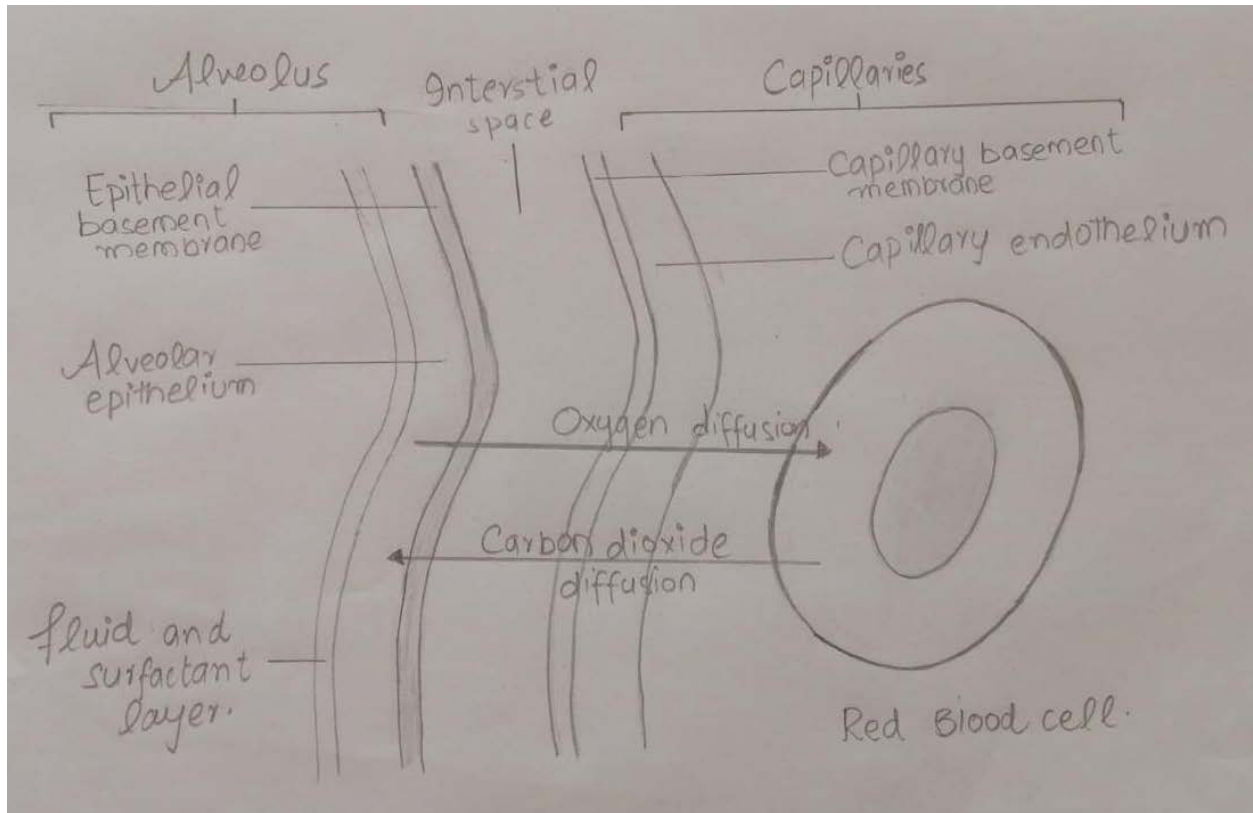 Alveolus
Interstial
space
Capillaries
Epithelial
basement
membrane
Capillary basement
membrane
Capillary endothelium
Alveolar
epithelium
Oxygen diffusion
Carbon dioxide
diffusion
fluid and
surfactant
layer.
Red Blood cell.